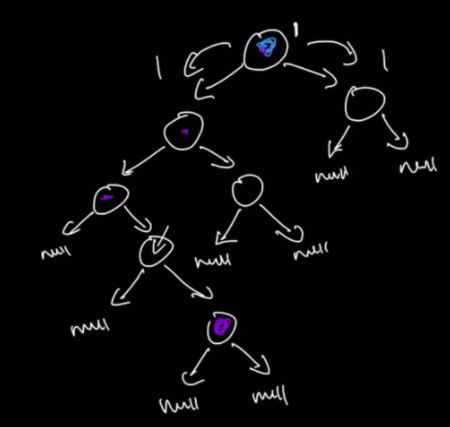 1
1 1
null null
null null null
null
null null